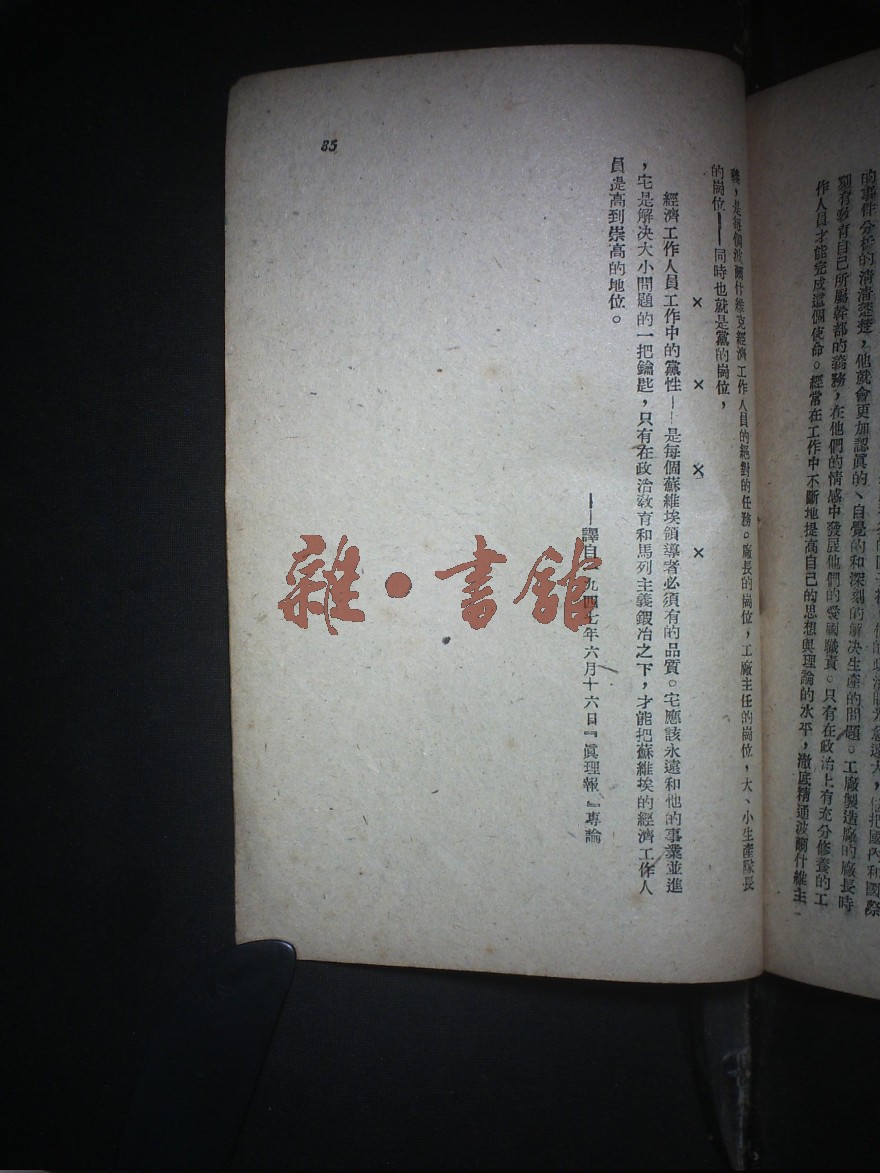 的事件分析的清清楚楚，他就會更加認眞的、自覺的和深刻的解决生產的問題。工廠製造廠的廠長時
刻有教育自己所屬幹部的義務，在他們的情感中發展他們的愛國職責。只有在政治上有充分修養的工
作人員才能完成這個使命。經常在工作中不斷地提高自己的思想與理論的水平，澈底精通波爾什維主
義，是每個波爾什維克經濟工作人員的絕對的任務。廠長的崗位，工廠主任的崗位，大、小生產隊長
的崗位——同時也就是黨的崗位，
×　×　×　×
經濟工作人員工作中的黨性——是每個蘇維埃領導者必須有的品質。它應該永遠和他的事業並進
，它是解决大小問題的一把鑰匙，只有在政治敎育和馬列主義鍛冶之下，才能把蘇維埃的經濟工作人
員提高到崇高的地位。
——譯自一九四七年六月十六日『眞理報』專論
85
雜·書館